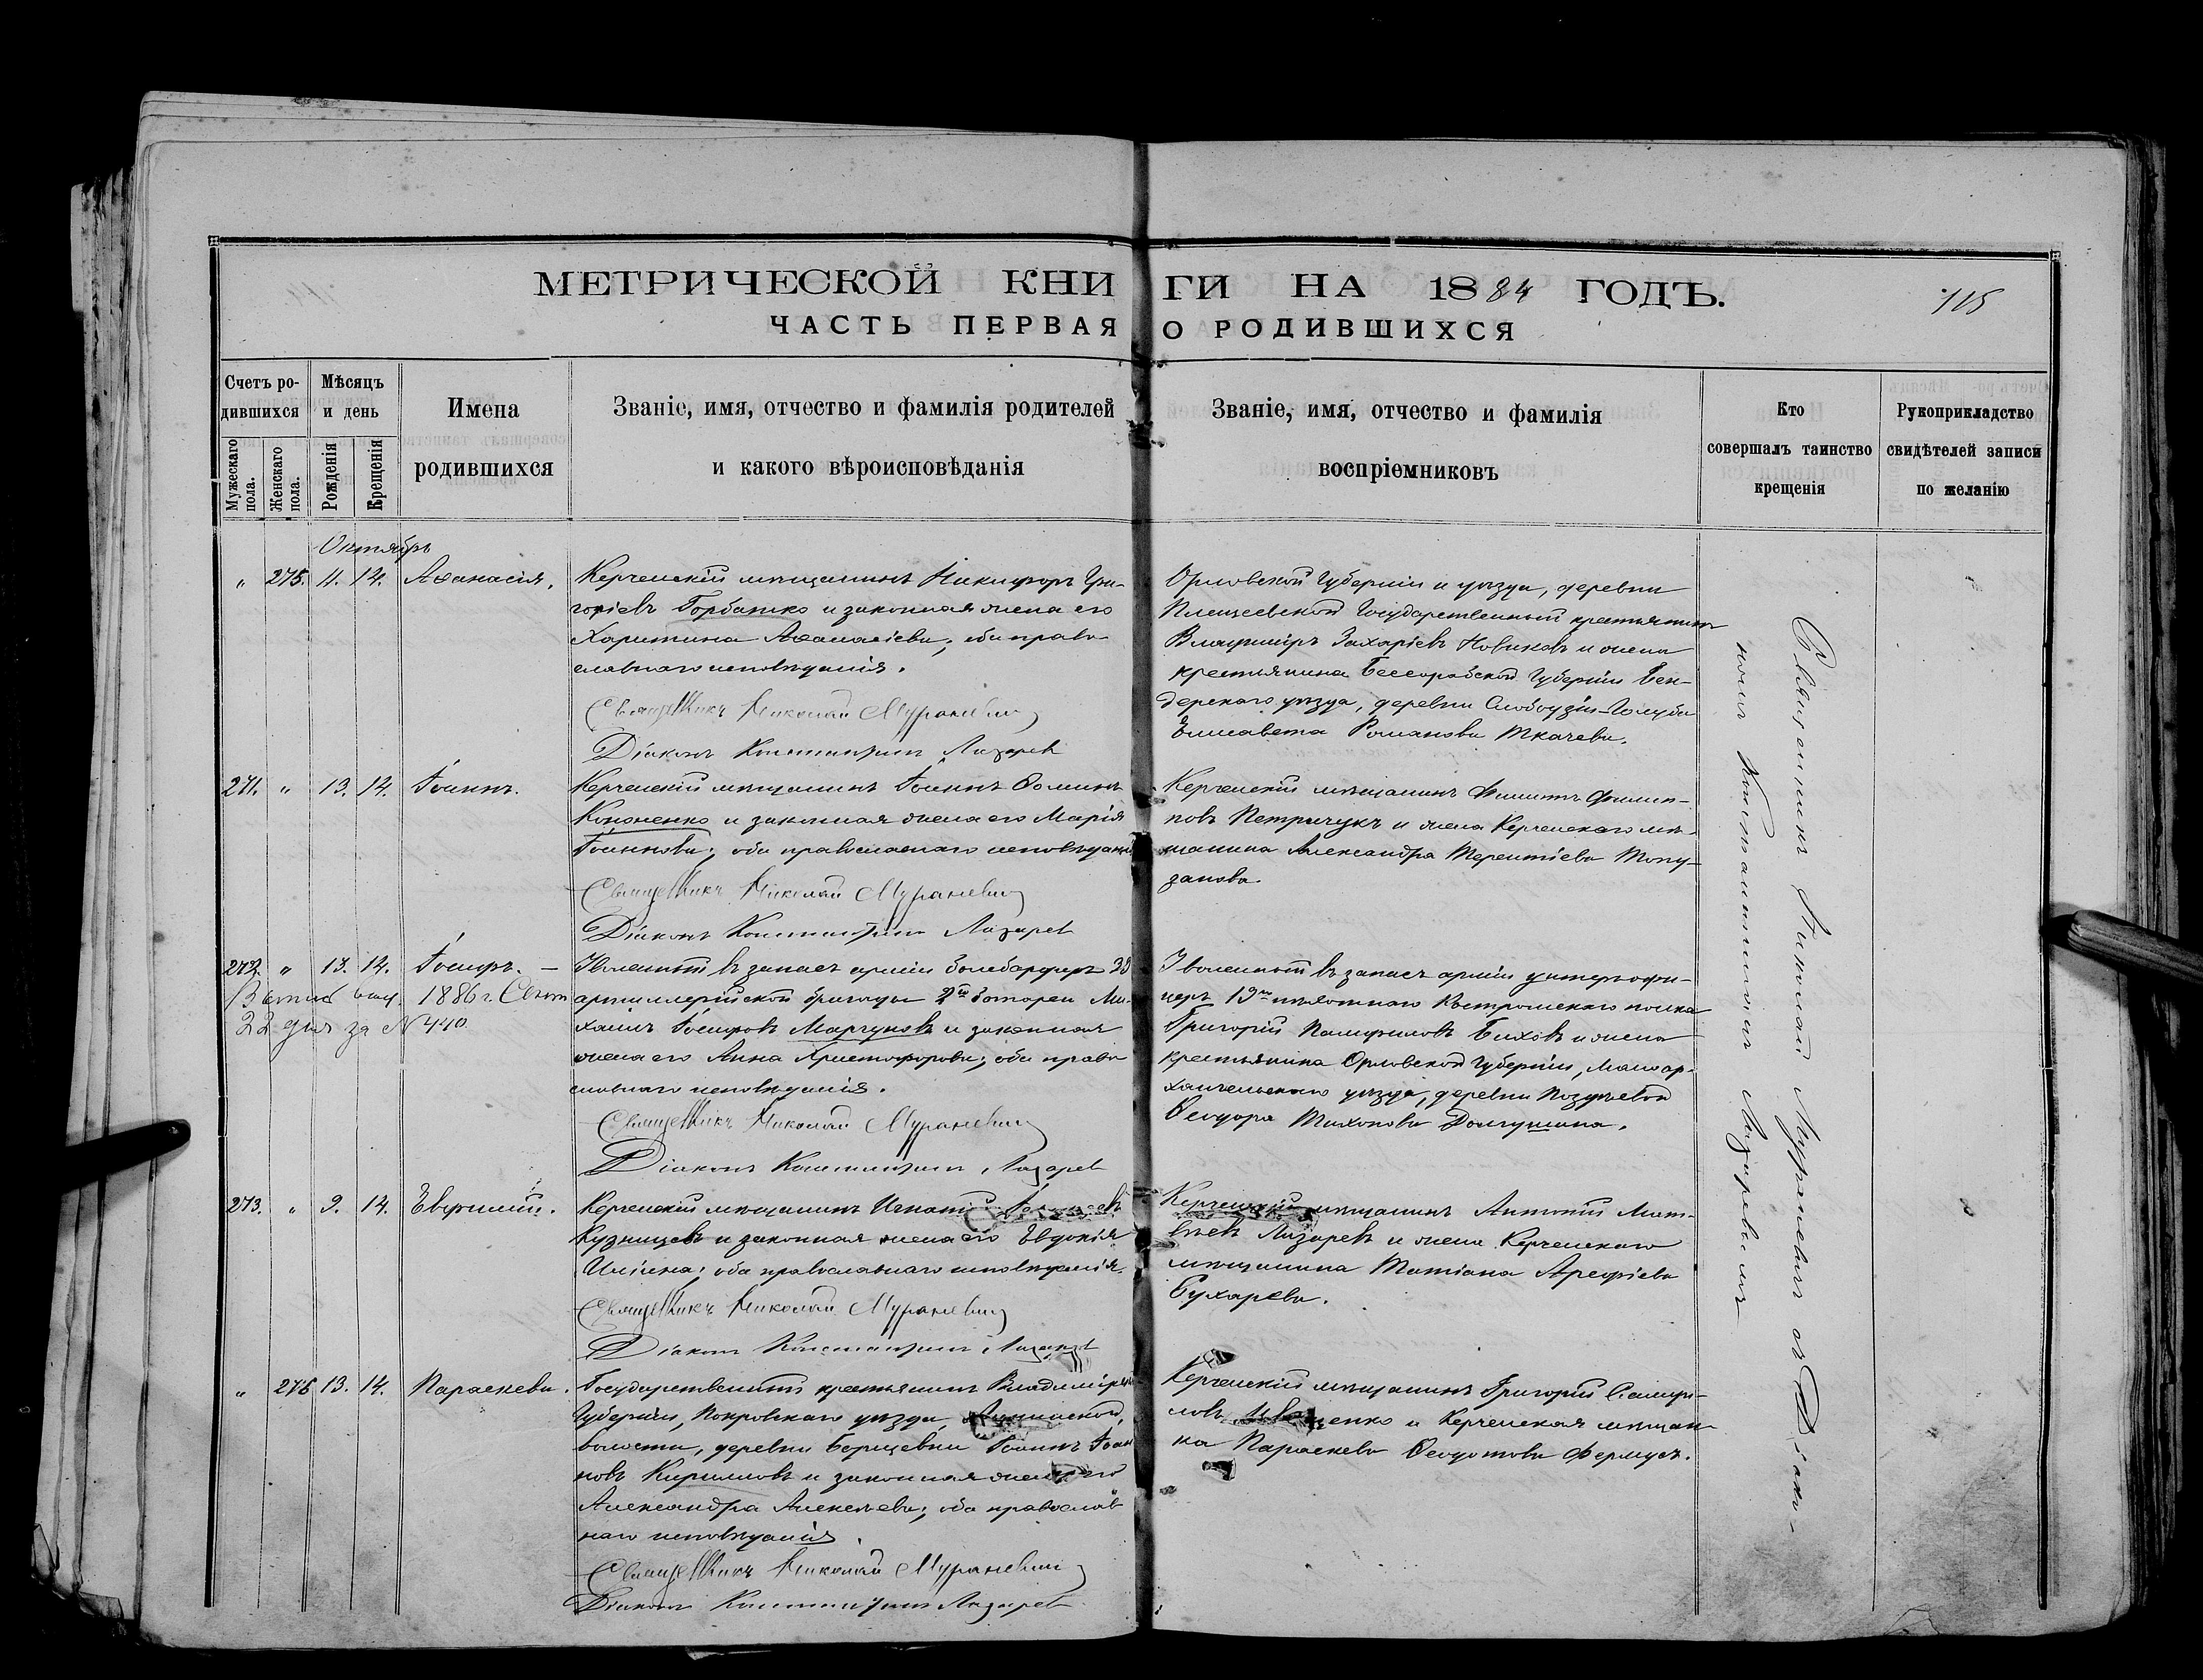 МЕТРИЧЕСКОЙ КНИГИ НА 1884 ГОДЪ.
115
ЧАСТЬ ПЕРВАЯ О РОДИВШИХСЯ
Счетъ родившихся
Мужескаго пола.
Женскаго пола.
Мѣсяцъ и день
Рожденія
Крещенія
Имена родившихся
Званіе, имя, отчество и фамилія родителей
и какого вѣроисповѣданія
Званіе, имя, отчество и фамилія
воспріемниковъ
Кто
совершалъ таинство
крещенія
Рукоприкладство
свидѣтелей записи
по желанію
Октябрь
" 275. 4. 14. Аѳанасія.
Керченскій мѣщанинъ Никифоръ Гри-
горіевъ Горбатко и законная жена его
Харитина Аѳанасіева, оба право-
славнаго исповѣданія.
Священникъ Николай Мураневич
Діаконъ Константинъ Лазарев
Орловской Губерніи и уѣзда, деревни
Плещеевской Государственный крестьянинъ
Владиміръ Захаріевъ Новиковъ и жена
крестьянина Бессарабской Губерніи Бен-
дерскаго уѣзда, деревни
Елисавета Романова Ткачева.
271. " 13. 14. Іоаннъ.
Керченскій мѣщанинъ Іоаннъ Ѳоминъ
Кононенко и законная жена его Марія
Іоаннова; оба православнаго исповѣданія
Священникъ Николай Мураневич
Діаконъ Константинъ Лазарев
Керченскій мѣщанинъ Филиппъ Филип-
повъ Петричукъ и жена Керченскаго мѣ-
щанина Александра Терентіева Топу-
занова.
272. " 13. 14. Іосифъ. —
1886 г. Сент
22 дня за № 440
Уволенный въ запасъ арміи бомбардиръ 33
артиллерійской бригады 2й батареи Ми-
хаилъ Іосифовъ Марчуковъ и законная
жена его Анна Христофорова; оба право-
славнаго исповѣданія.
Священникъ Николай Мураневич
Діаконъ Константинъ Лазарев
Уволенный въ запасъ арміи унтеръ офи-
церъ 19го пѣхотнаго Костромскаго полка
Григорій Памфиловъ Быховъ и жена
крестьянина Орловской Губерніи, Малоар-
хангельскаго уѣзда, деревни
Ѳеодора Тихонова Долгушина.
273. " 9. 14. Евфимій.
Керченскій мѣщанинъ Игнатій
Кузнецовъ и законная жена его Евдокія
Ильина; оба православнаго исповѣданія.
Священникъ Николай Мураневич
Діаконъ Константинъ Лазарев
Керченскій мѣщанинъ Антоній Мат-
вѣевъ Лазаревъ и жена Керченскаго
мѣщанина Татіана Арефіева
Бухарева.
" 276 13. 14. Параскева.
Государственный крестьянинъ Владимірской
Губерніи, Покровскаго уѣзда,
волости, деревни Іоаннъ Іоан-
новъ Кирилловъ и законная жена его
Александра Алексѣева; оба православ-
наго исповѣданія.
Священникъ Николай Мураневич
Діаконъ Константинъ Лазарев
Керченскій мѣщанинъ Григорій
и Керченская мѣщан-
ка Параскева Ѳеодотова Фермусъ.
Священникъ Николай Мураневичъ съ Діако-
номъ Константиномъ Лазаревымъ